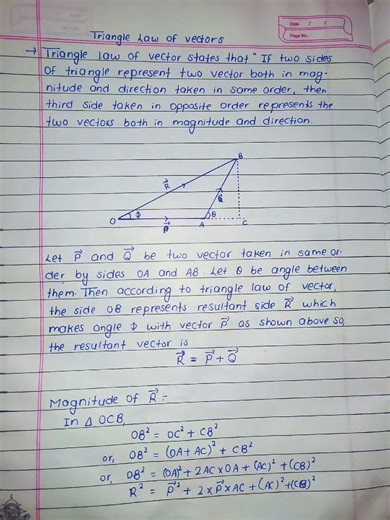 Date / /
Page No.
Triangle Law of vectors
→ Triangle law of vector states that "If two sides
of triangle represent two vector both in mag-
nitude and direction taken in same order, then
third side taken in opposite order represents the
two vectors both in magnitude and direction.
B
R⃗
Q⃗
O ϕ P⃗ A θ C
Let P⃗ and Q⃗ be two vector taken in same or-
der by sides OA and AB. Let θ be angle between
them. Then according to triangle law of vector,
the side OB represents resultant side R⃗ which
makes angle ϕ with vector P⃗ as shown above so,
the resultant vector is
R⃗ = P⃗ + Q⃗
Magnitude of R⃗ =
In △ OCB,
OB² = OC² + CB²
or, OB² = (OA + AC)² + CB²
or, OB² = (OA)² + 2AC × OA + (AC)² + (CB)²
R² = P⃗² + 2 × P⃗ × AC + (AC)² + (CB)²